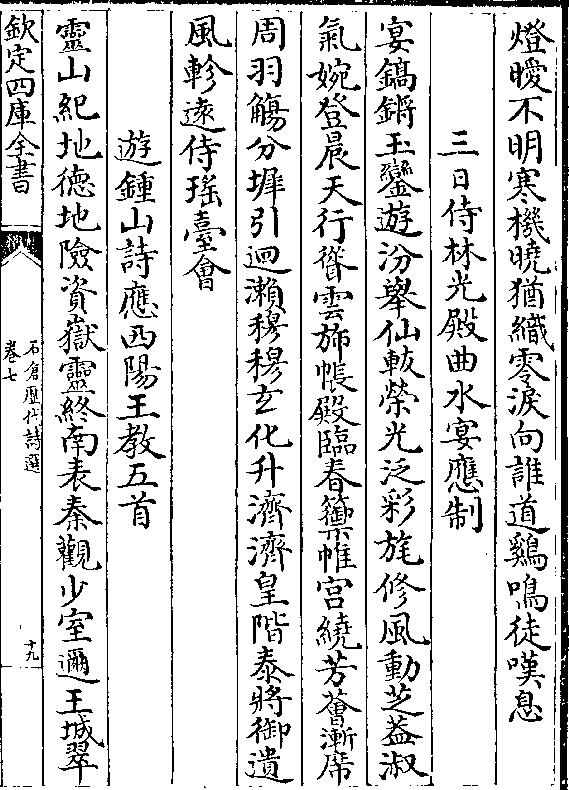 燈曖不明寒機曉猶織零淚向誰道鷄鳴徒嘆息
三日侍林光殿曲水宴應制
宴鎬鏘玉鑾遊汾舉仙軑榮光泛彩旄修風動芝蓋淑
氣婉登晨天行聳雲斾帳殿臨春籞帷宫繞芳薈漸席
周羽觴分墀引迴瀨穆穆玄化升濟濟皇階泰將御遺
風軫逺侍瑤臺會
遊鍾山詩應西陽王教五首
靈山紀地德地險資嶽靈終南表秦觀少室邇王城翠
欽定四庫全書
石倉歷代詩選
卷七
十九